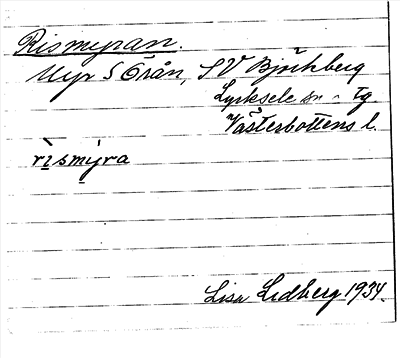 Rismyran.
Myr S Örån, SV Björkberg
Lycksele sn o tg
Västerbottens l.
rismyra
Lisa Lidberg 1934.